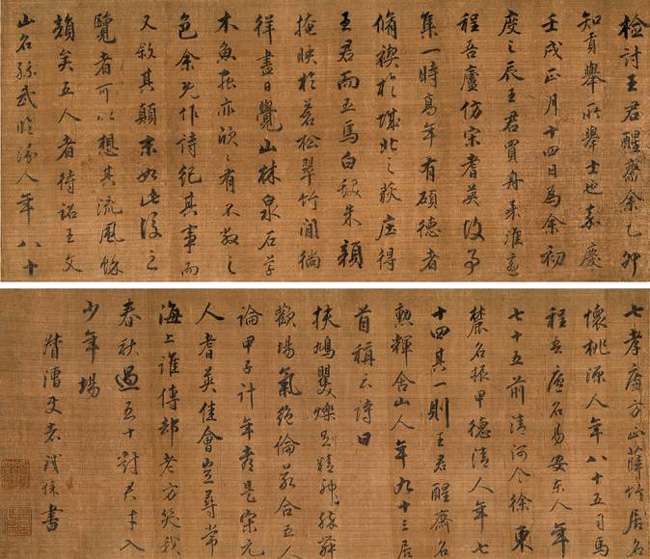 檢討王君醒齋余乙卯
知貢舉所舉士也嘉慶
壬戌正月十四日為余初
度之辰王君買舟來淮
程吾廬仿宋耆英故事
集一時高年有碩德者
脩禊於城北之庄得
王君而五焉白鬚朱顏
掩映於蒼松翠竹間徜
徉盡日覺山林泉石草
木魚亦欣欣有不散之
色余既作詩紀其事而
又敘其顛末如此後之
覽者可以想其流風餘
韻矣五人者待詔王文
山名孫武臨汾人年八十
七孝廉方正薛竹居名
懷桃源人年八十五司馬
程吾廬名易安東人年
七十五前清河令徐東
麓名振甲德清人年七
十四其一則王君醒齋名
勲輝含山人年九十三居
首稱云詩曰
扶鳩矍爍足精神舞
歡場氣絕倫合五人
論甲子計年是宋元
人耆英佳會豈尋常
海上誰傳却老方笑我
春秋過五十對君才入
少年場
督漕使者鐵保書